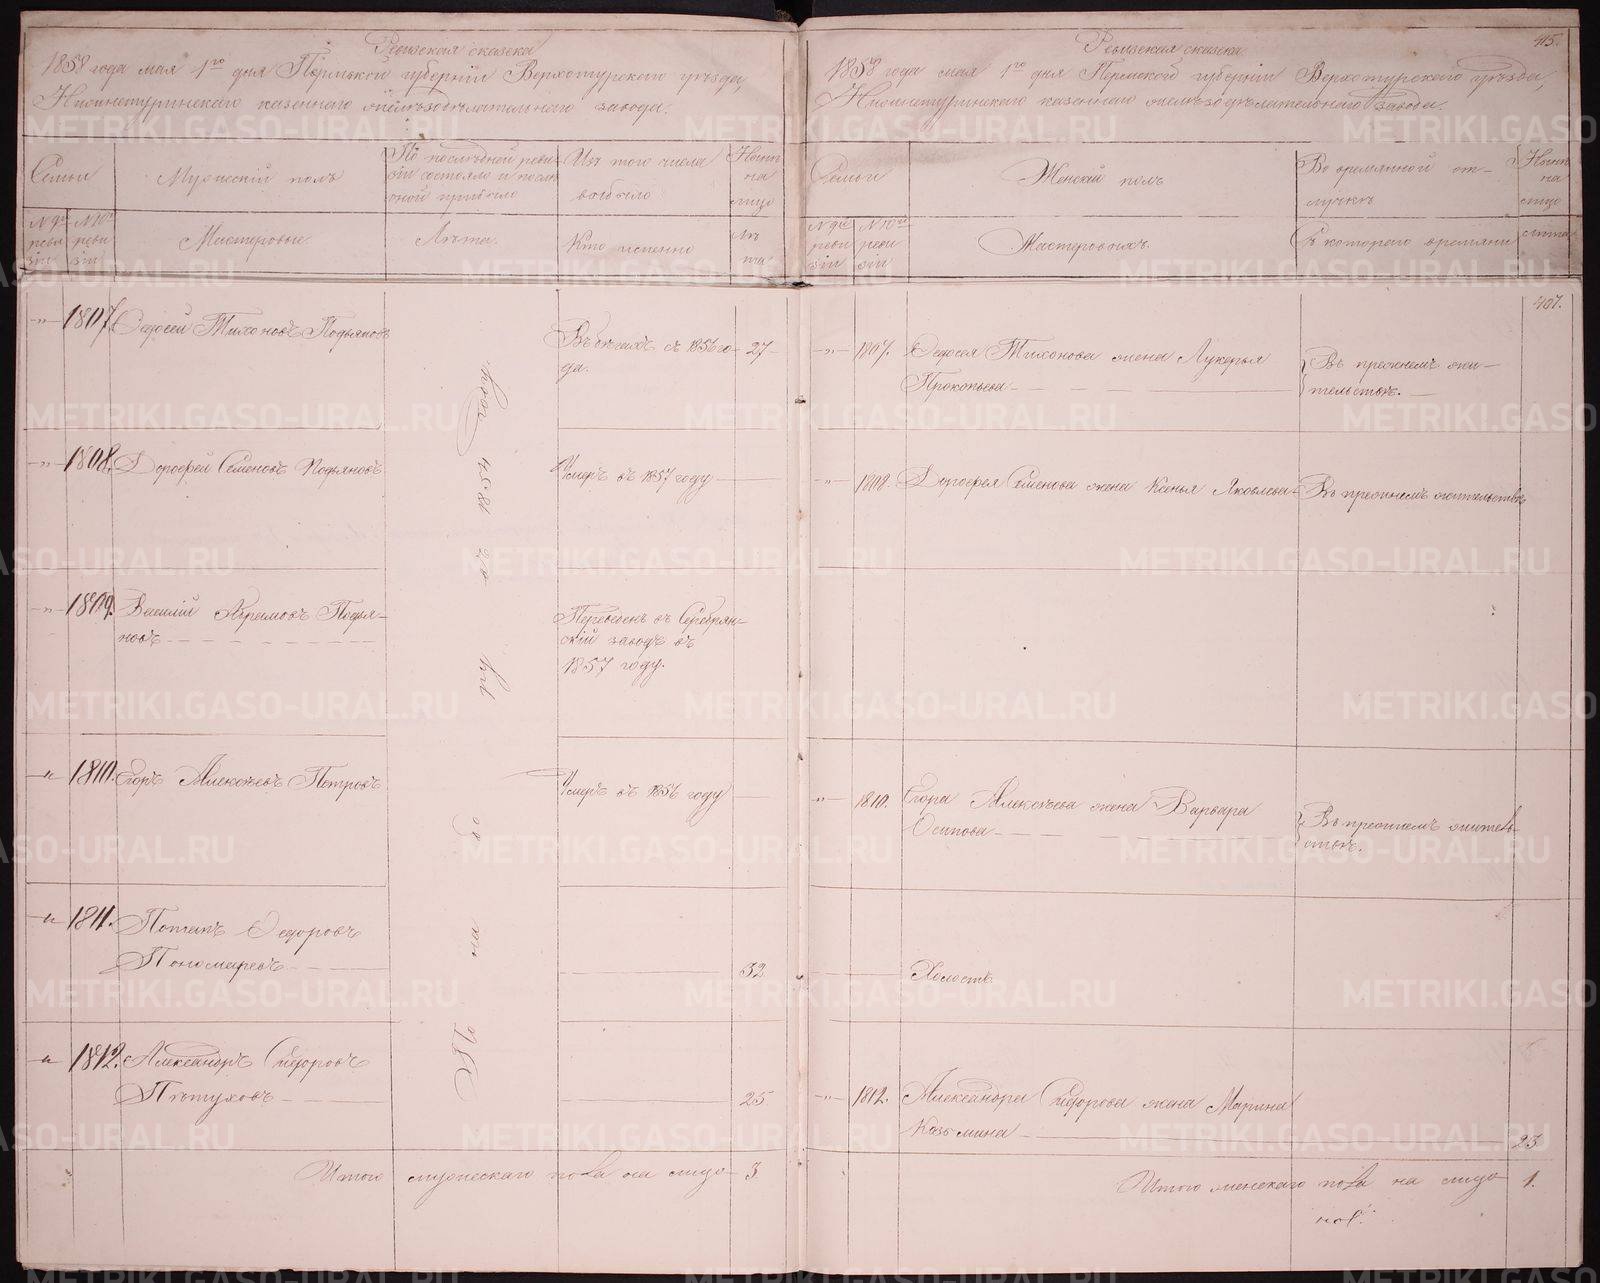 Ревизская сказка
1858 года мая 1го дня Пермской губернiи Верхотурскаго уѣзда,
Нижнетуринскаго казеннаго желѣзодѣлательнаго завода.
Семьи
Мужескiй полъ
По послѣдней реви-
зiи состояло и послѣ
оной прибыло
Изъ того числа
выбыло
Нынѣ
на
лицо
№ 9й
реви
зiи
№ 10й
реви
зiи
Мастеровые
Лѣта.
Кто именно
Лѣ
та
-"- 1807. Федосей Тихоновъ Подьяновъ
Въ бѣгахъ съ 1856 го-
да.
27
-"- 1808. Дорофей Семеновъ Подьяновъ
Умеръ въ 1857 году
-"- 1809. Василiй Абрамовъ Подья-
новъ
Переведенъ въ Серебрян-
скiй заводъ въ
1857 году.
-"- 1810. Егоръ Алексѣевъ Петровъ
Умеръ въ 1856 году
-"- 1811. Потапъ Федоровъ
Пономаревъ
32
-"- 1812. Александръ Сидоровъ
Пѣтуховъ
25
Итого мужескаго пола на лицо 3
Ревизская сказка
415.
1858 года мая 1го дня Пермской губернiи Верхотурскаго уѣзда,
Нижнетуринскаго казеннаго желѣзодѣлательнаго завода.
Семьи
Женскiй полъ
Во временной от-
лучкѣ
Нынѣ
на
лицо
№ 9й
реви
зiи
№ 10й
реви
зiи
Мастеровыхъ.
Съ котораго времяни
лѣта
407.
-"- 1807. Федосея Тихонова жена Лукерья
Прокопьева
Въ прежнемъ жи-
тельствѣ.
-"- 1808. Дорофея Семенова жена Ксенья Яковлева
Въ прежнемъ жительствѣ
-"- 1810. Егора Алексѣева жена Варвара
Осипова
Въ прежнемъ житель-
ствѣ.
Холостъ
-"- 1812. Александра Сидорова жена Марина
Козьмина
23
Итого женскаго пола на лицо 1.
METRIKI.GASO-URAL.RU